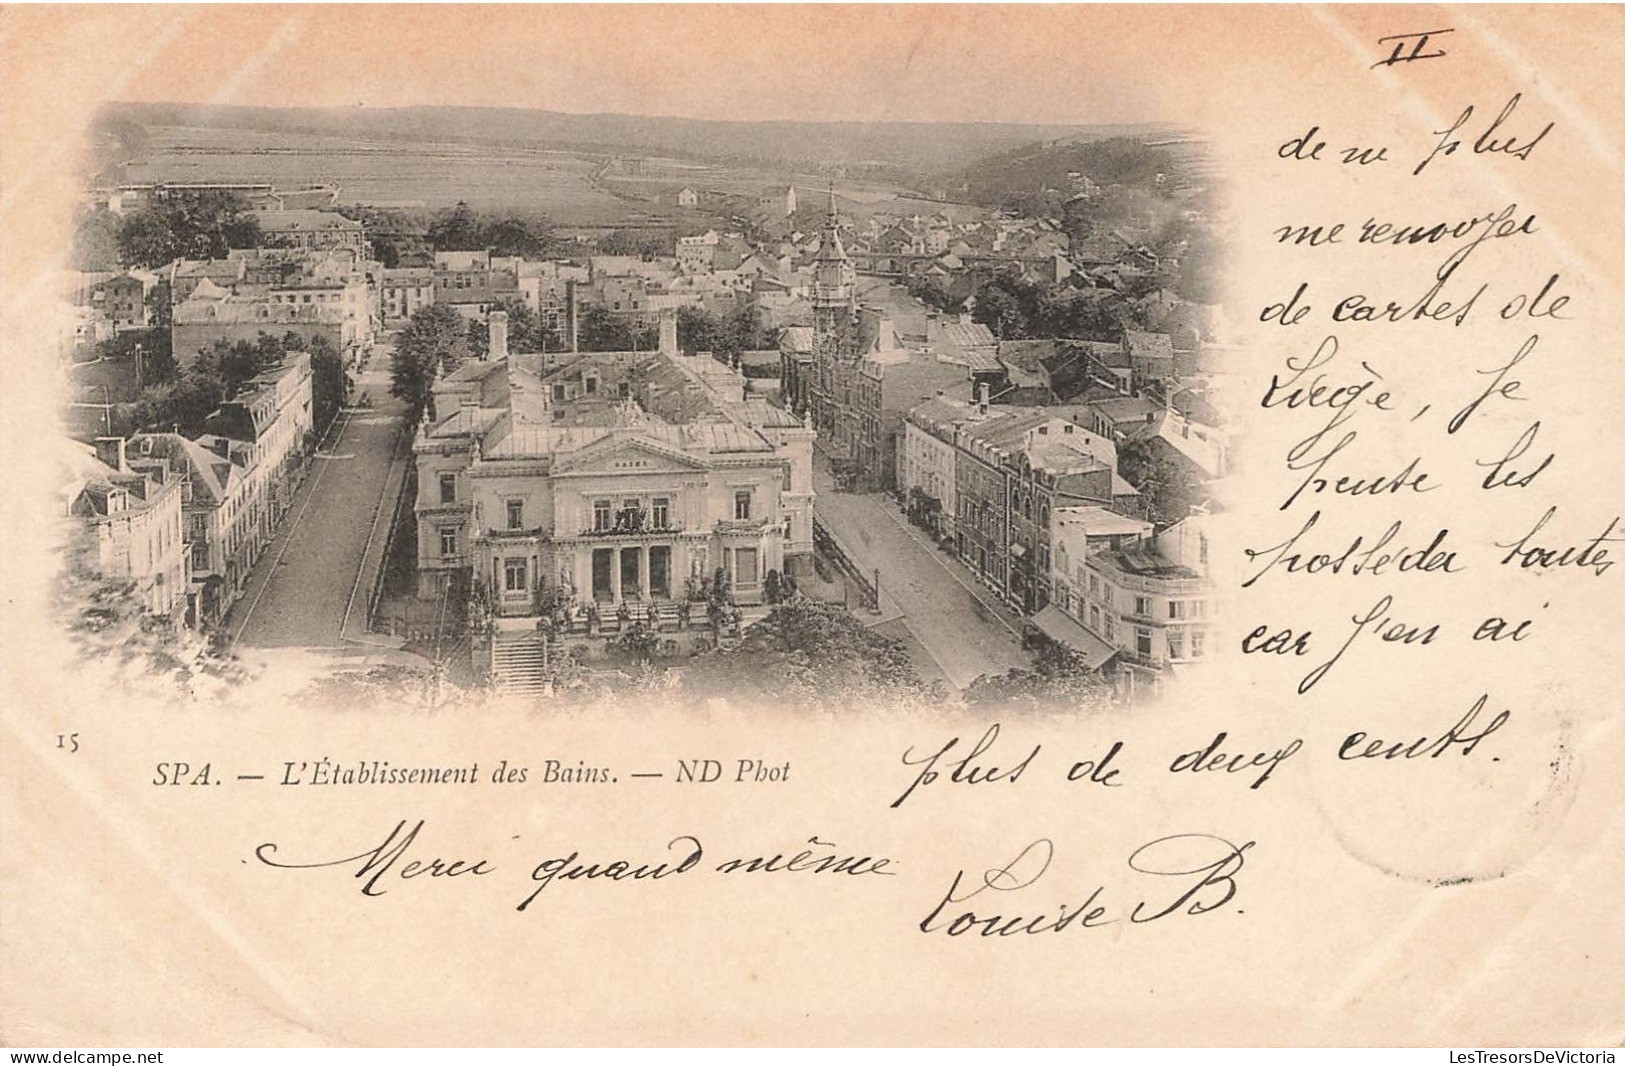 II
de ne plus
me renvoyer
de cartes de
Liège, Je
pense les
posséder toutes
car j'en ai
plus de deux cents.
BAINS
15
SPA. — L'Établissement des Bains. — ND Phot
Merci quand même
Louise B.
www.delcampe.net
LesTresorsDeVictoria